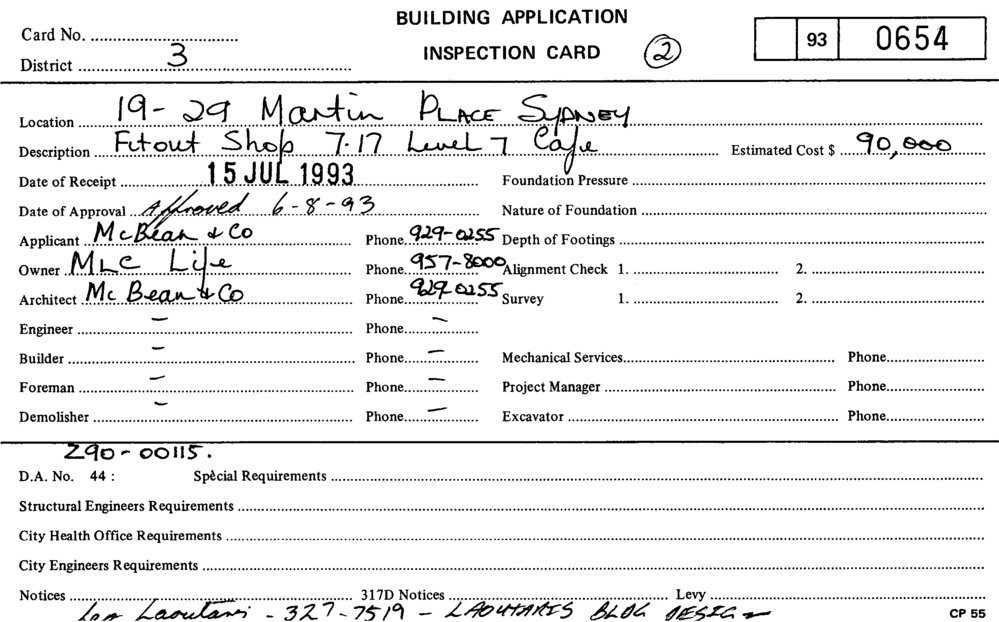 BUILDING APPLICATION
INSPECTION CARD ②
93 0654
Card No. ....................
District 3
Location 19-29 Martin PLACE SYDNEY
Description Fitout Shop 7.17 Level 7 Cafe Estimated Cost $ 90,000
Date of Receipt 15 JUL 1993 Foundation Pressure
Date of Approval Approved 6-8-93 Nature of Foundation
Applicant McBean & Co Phone 929-0255 Depth of Footings
Owner MLC Life Phone 957-8000 Alignment Check 1. 2.
Architect Mc Bean & Co Phone 929 0255 Survey 1. 2.
Engineer – Phone –
Builder – Phone – Mechanical Services Phone
Foreman – Phone – Project Manager Phone
Demolisher – Phone – Excavator Phone
Z90-00115.
D.A. No. 44 : Special Requirements
Structural Engineers Requirements
City Health Office Requirements
City Engineers Requirements
Notices 317D Notices Levy
Laoutaris - 327-7519 - LAOUTARIS BLDG DESIGN
CP 55